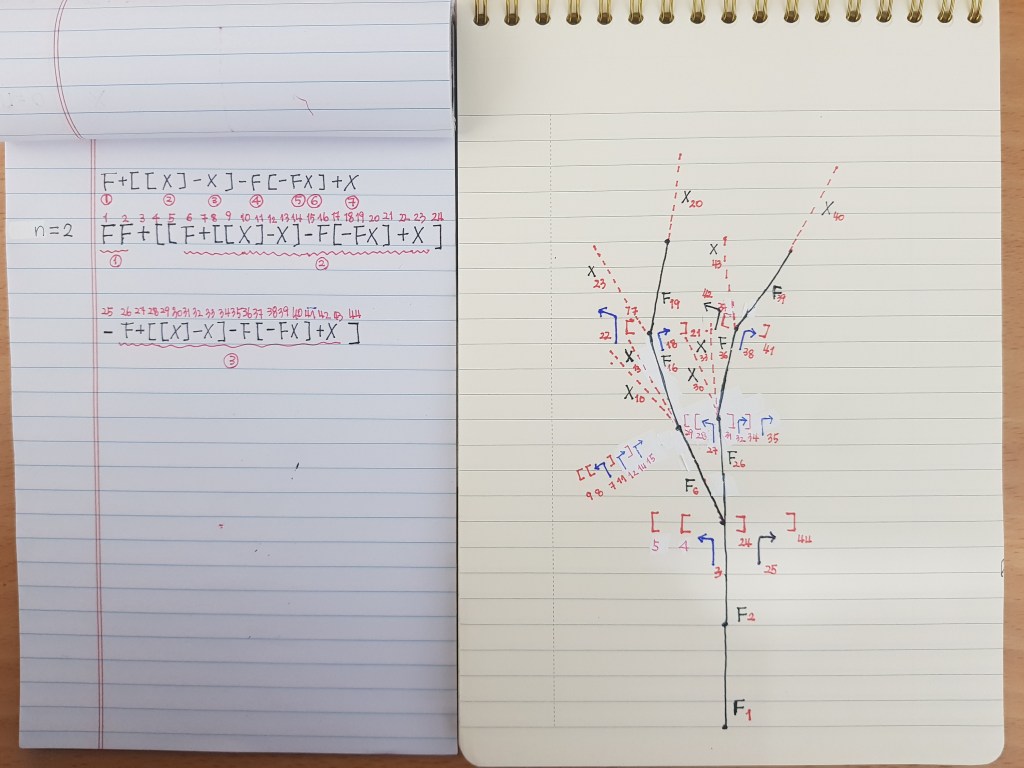 F+[[X]-X]-F[-FX]+X
① ② ③ ④ ⑤ ⑥ ⑦
1 2 3 4 5 6 7 8 9 10 11 12 13 14 15 16 17 18 19 20 21 22 23 24
n=2 FF+[[F+[[X]-X]-F[-FX]+X]
① ②
25 26 27 28 29 30 31 32 33 34 35 36 37 38 39 40 41 42 43 44
-F+[[X]-X]-F[-FX]+X]
③
X20
X40
X
23
X
43
F19
F39
17
[
22
]
21
18
F16
X
13
X10
42
37
[
F
36
]
38 41
X
33
X
30
[[ ]]
29 28 27 31 32 34 35
[[ ] ]
9 8 7 11 12 14 15
F6
F26
[ [ ] ]
5 4 24 44
3 25
F2
F1